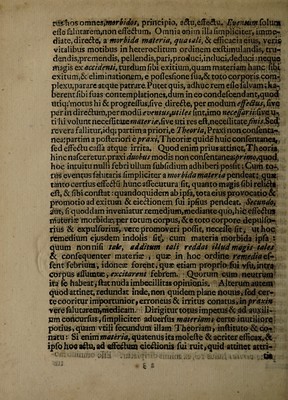 rus hos omnes, morbidos, principio, actu, effectu. Eventum solum
esse salutarem, non effectum. Omnia enim illa simpliciter, imme-
diate, directe, a morbida materia, qua tali, & efficacia ejus, veris
vitalibus motibus in heteroclitum ordinem exstimulandis, tru-
dendis, premendis, pellendis, pari, produci, induci, deduci: neque
magis ex accidenti, tandem sibi exitium, quam materiam hanc sibi
exitum, & eliminationem, e possessione sua, & toto corporis com-
plexu, parare atque patrare. Puter quis, adhuc tum esse salvum, ha-
berent sibi suas contemplationes, dum in eo condescendant, quod
utiq; motus hi & progressus, sive directe, per modum effectus, sive
per indirectum, per modum eventus, utiles sint, imo necessarii: sive u-
ri hi volunt necessitate materiæ, sive uti res est, necessitate finis. Sed
revera fallitur, idq; partim a priori, e Theoria, Praxi non consenta-
nea: partim a posteriori e praxi, Theoriæ quidē huic consentanea,
sed effectu cassa atque irrita. Quod enim prius attinet, Theoria
hinc nascetur praxi dubia: modis non consentanea: primo, quod
hoc intuitu nulli febri ullum subsidium adhiberi possit. Cum to-
tus eventus salutaris simpliciter a morbida materia pendeat; quæ
tanto certius effectū hunc assecutura sit, quanto magis sibi relicta
est, & sibi constat: quando quidem ab ipsa, tota ejus provocatio &
promotio ad exitum & ejectionem sui ipsius pendeat. Secundo,
an, si quoddam inveniatur remedium, mediante quo, hic effectus
materiæ morbidæ, per totum corpus, & e toto corpore depulso-
rius & expulsorius, vere promoveri possit, necesse sit, ut hoc
remedium ejusdem indolis sit, cum materia morbida ipsa:
quum nonnisi tale, additum tali reddat illud magis tale
& consequenter materiæ, quæ in hoc ordine remedia es-
sent febrium, idonea forent, quæ etiam propria sua vi, intra
corpus assumtæ, excitarent febrem. Quorum cum neutrum
ita se habeat, stat nuda imbecillitas opinionis. Alterum autem
quod attinet, redundat inde, non quidem plane novus, sed cer-
te cooritur importunior, erroneus & irritus conatus, in praxin
vere salutarem, medicam. Dirigitur totus impetus & ad auxili-
um concursus, simpliciter adversus materiam: certe inutiliore
potius, quam utili secundum illam Theoriam, instituto & co-
natu: Si enim materia, quatenus ita molesta & acriter efficax, &
ipso hoc actu, ad effectum ejectionis sui ruit, quid attinet attri-